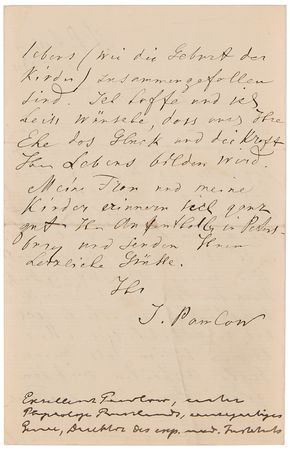 lebens (wie die Geburt der
Kinder) zusammengefallen
sind. Ich hoffe und ich
wünsche, dass
Ehe das Gluck und die Kraft
Ihres Lebens bilden wird.
Meine Frau und meine
Kinder erinnern sich ganz
gut Ihren Aufenthalt in Peters-
burg und senden Ihnen
herzliche Grüße.
Ihr
J. Pawlow
Exzellenz Pawlow, erster
Physiologe Russlands,
Direktor des exp. med. Instituts